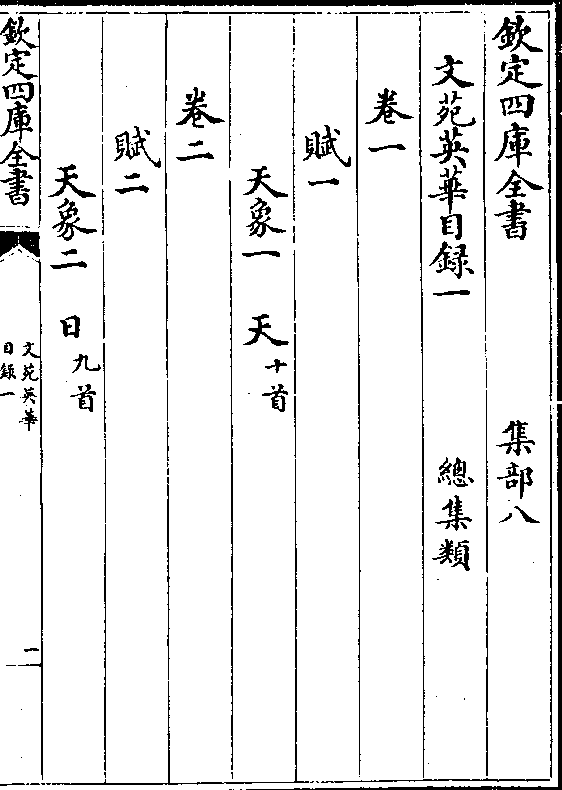 欽定四庫全書　集部八
文苑英華目録一　總集類
卷一
賦一
天象一　天十首
卷二
賦二
天象二　日九首
欽定四庫全書
文苑英華
目録一
一